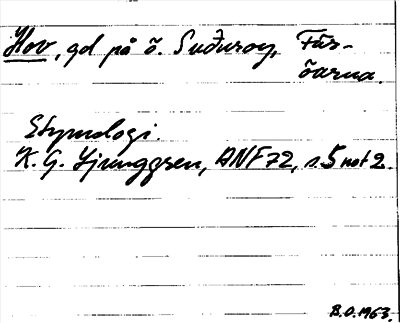 Hov, gd på ö. Suðuroy, Fär-
öarna.
Etymologi.
K. G. Ljunggren, ANF 72, s. 5 not 2.
B.O. 1963.